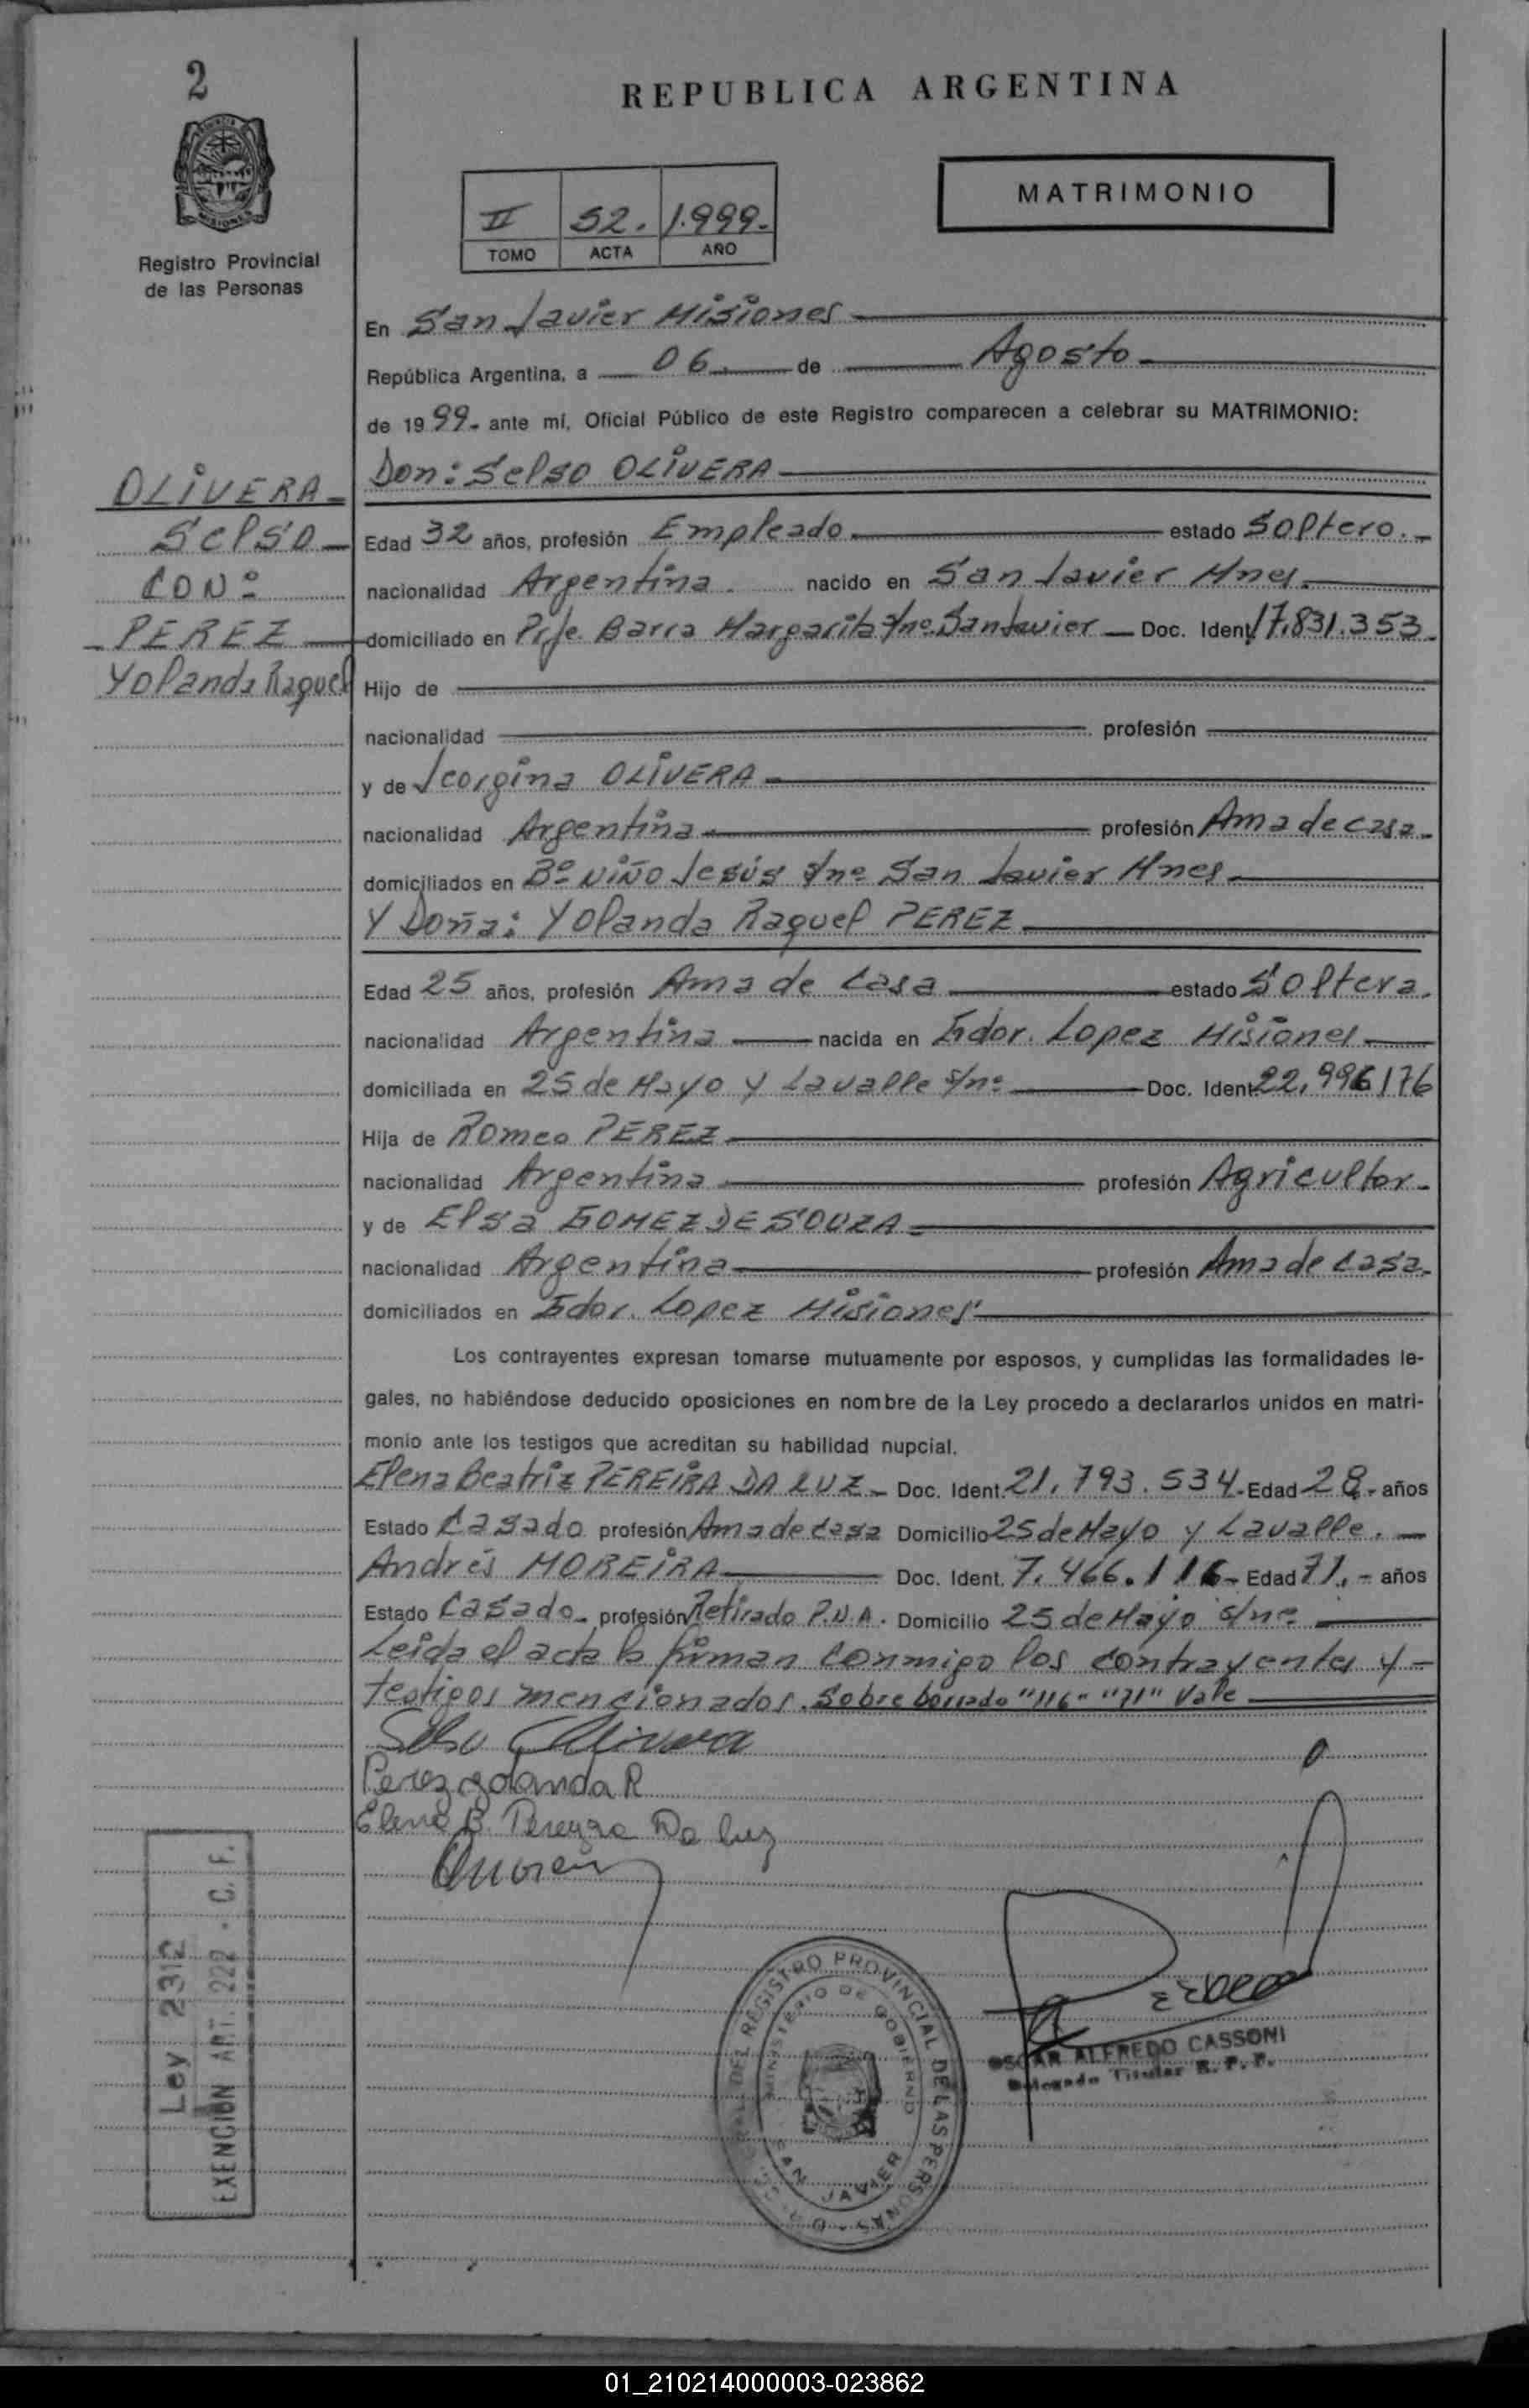 2
REPUBLICA ARGENTINA
MISIONES
Registro Provincial
de las Personas
II 52. 1.999.-
TOMO ACTA AÑO
MATRIMONIO
En San Javier Misiones
República Argentina, a 06. de Agosto
de 19 99.- ante mí, Oficial Público de este Registro comparecen a celebrar su MATRIMONIO:
OLIVERA
Selso
CON:
PEREZ
Yolanda Raquel
Don: Selso OLIVERA
Edad 32 años, profesión Empleado estado Soltero.-
nacionalidad Argentina. nacido en San Javier Mnes.
domiciliado en Pje. Barra Margarita s/nº San Javier Doc. Ident 17.831.353
Hijo de
nacionalidad profesión
y de Jeorgina OLIVERA
nacionalidad Argentina profesión Ama de casa.
domiciliados en Bº NIÑO Jesús s/nº San Javier Mnes
Y Doña: Yolanda Raquel PEREZ
Edad 25 años, profesión Ama de Casa estado Soltera.
nacionalidad Argentina nacida en Gdor. Lopez Misiones
domiciliada en 25 de Mayo y Lavalle s/nº Doc. Ident. 22.996176
Hija de Romeo PEREZ
nacionalidad Argentina profesión Agricultor.
y de Elsa GOMEZ DE SOUZA
nacionalidad Argentina profesión Ama de casa.
domiciliados en Gdor. Lopez Misiones
Los contrayentes expresan tomarse mutuamente por esposos, y cumplidas las formalidades le-
gales, no habiéndose deducido oposiciones en nombre de la Ley procedo a declararlos unidos en matri-
monio ante los testigos que acreditan su habilidad nupcial.
Elena Beatriz PEREIRA DA LUZ Doc. Ident. 21.793.534.- Edad 28.- años
Estado Casado profesión Ama de casa Domicilio 25 de Mayo y Lavalle.
Andrés MOREIRA Doc. Ident. 7.466.116- Edad 71.- años
Estado Casado profesión Retirado P.N.A. Domicilio 25 de Mayo s/nº
Leida el acta la firman conmigo los contrayentes y
testigos mencionados. Sobre borrado "116" "71" Vale
Selso Olivera
Perez Yolanda R
Elena B. Pereyra Da Luz
Ley 2312
EXENCION ART. 222 - C. F.
REGISTRO PROVINCIAL DE LAS PERSONAS
MINISTERIO DE GOBIERNO
SAN JAVIER
OSCAR ALFREDO CASSONI
Delegado Titular R. P. P.
01_210214000003-023862